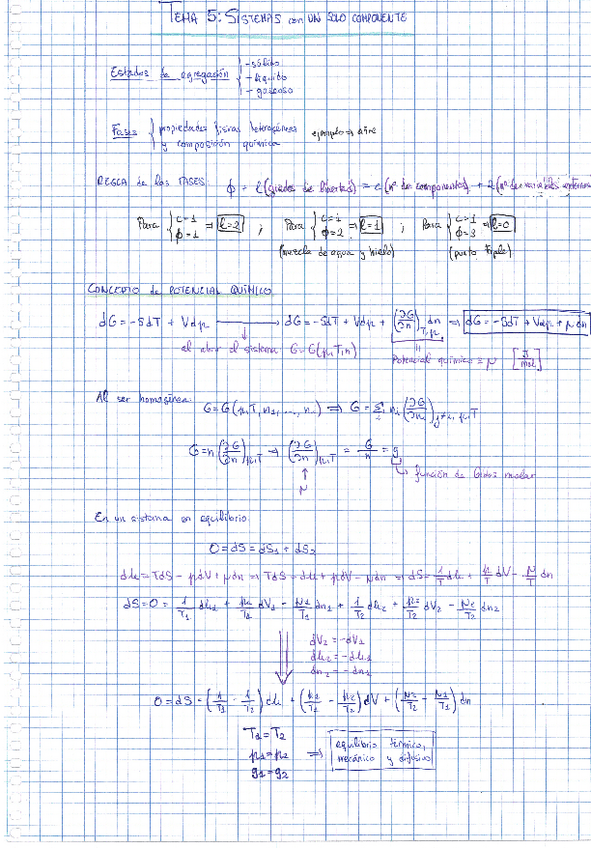 TEMA 5: SISTEMAS con UN SOLO COMPONENTE
Estados de agregación { - sólido
- líquido
- gaseoso
Fases { propiedades físicas heterogéneas ejemplo ⇒ aire
y composición química
REGLA de las FASES: ϕ + ℓ (grados de libertad) = c (nº de componentes) + 2 (nº de variables intensivas
Para { c=1 ϕ=1 ⇒ ℓ=2 ; Para { c=1 ϕ=2 ⇒ ℓ=1 ; Para { c=1 ϕ=3 ⇒ ℓ=0
(mezcla de agua y hielo) (punto triple)
CONCEPTO de POTENCIAL QUÍMICO
dG = -SdT + Vdp ⟶ dG = -SdT + Vdp + (∂G/∂n)_{T,p} dn ⇒ dG = -SdT + Vdp + μ dn
al abrir el sistema G=G(p,T,n) Potencial químico = μ [J/mol]
Al ser homogénea: G = G(p,T,n₁,...,nᵣ) ⇒ G = Σ nᵢ (∂G/∂nᵢ)_{j≠i,p,T}
G = n (∂G/∂n)_{p,T} ⇒ (∂G/∂n)_{p,T} = G/n = g
↳ función de Gibbs molar
↑
μ
En un sistema en equilibrio:
0 = dS = dS₁ + dS₂
dU = TdS - pdV + μdn ⇒ TdS = dU + pdV - μdn ⇒ dS = 1/T dU + p/T dV - μ/T dn
dS = 0 = 1/T₁ dU₁ + p₁/T₁ dV₁ - μ₁/T₁ dn₁ + 1/T₂ dU₂ + p₂/T₂ dV₂ - μ₂/T₂ dn₂
dV₂ = -dV₁
dU₂ = -dU₁
dn₂ = -dn₁
0 = dS = (1/T₁ - 1/T₂) dU + (p₁/T₁ - p₂/T₂) dV + (μ₂/T₂ - μ₁/T₁) dn
T₁ = T₂
p₁ = p₂ ⇒ equilibrio térmico,
g₁ = g₂ mecánico y difusivo